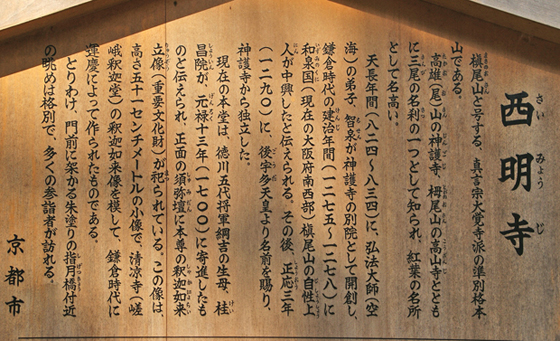 西明寺
さいみょうじ
槇尾山と号する、真言宗大覚寺派の準別格本
山である。
高雄(尾)山の神護寺、栂尾山の高山寺ととも
に三尾の名刹の一つとして知られ、紅葉の名所
として名高い。
天長年間(八二四〜八三四)に、弘法大師(空
海)の弟子、智泉が神護寺の別院として開創し、
鎌倉時代の建治年間(一二七五〜一二七八)に
和泉国(現在の大阪府南西部)槇尾山の自性上
人が中興したと伝えられる。その後、正応三年
(一二九〇)に、後宇多天皇より名前を賜り、
神護寺から独立した。
現在の本堂は、徳川五代将軍綱吉の生母、桂
昌院が、元禄十三年(一七〇〇)に寄進したも
のと伝えられ、正面の須弥壇に本尊の釈迦如来
立像(重要文化財)が祀られている。この像は、
高さ五十一センチメートルの小像で、清凉寺(嵯
峨釈迦堂)の釈迦如来像を模して、鎌倉時代に
運慶によって作られたものである。
とりわけ、門前に架かる朱塗りの指月橋付近
の眺めは格別で、多くの参詣者が訪れる。
京都市